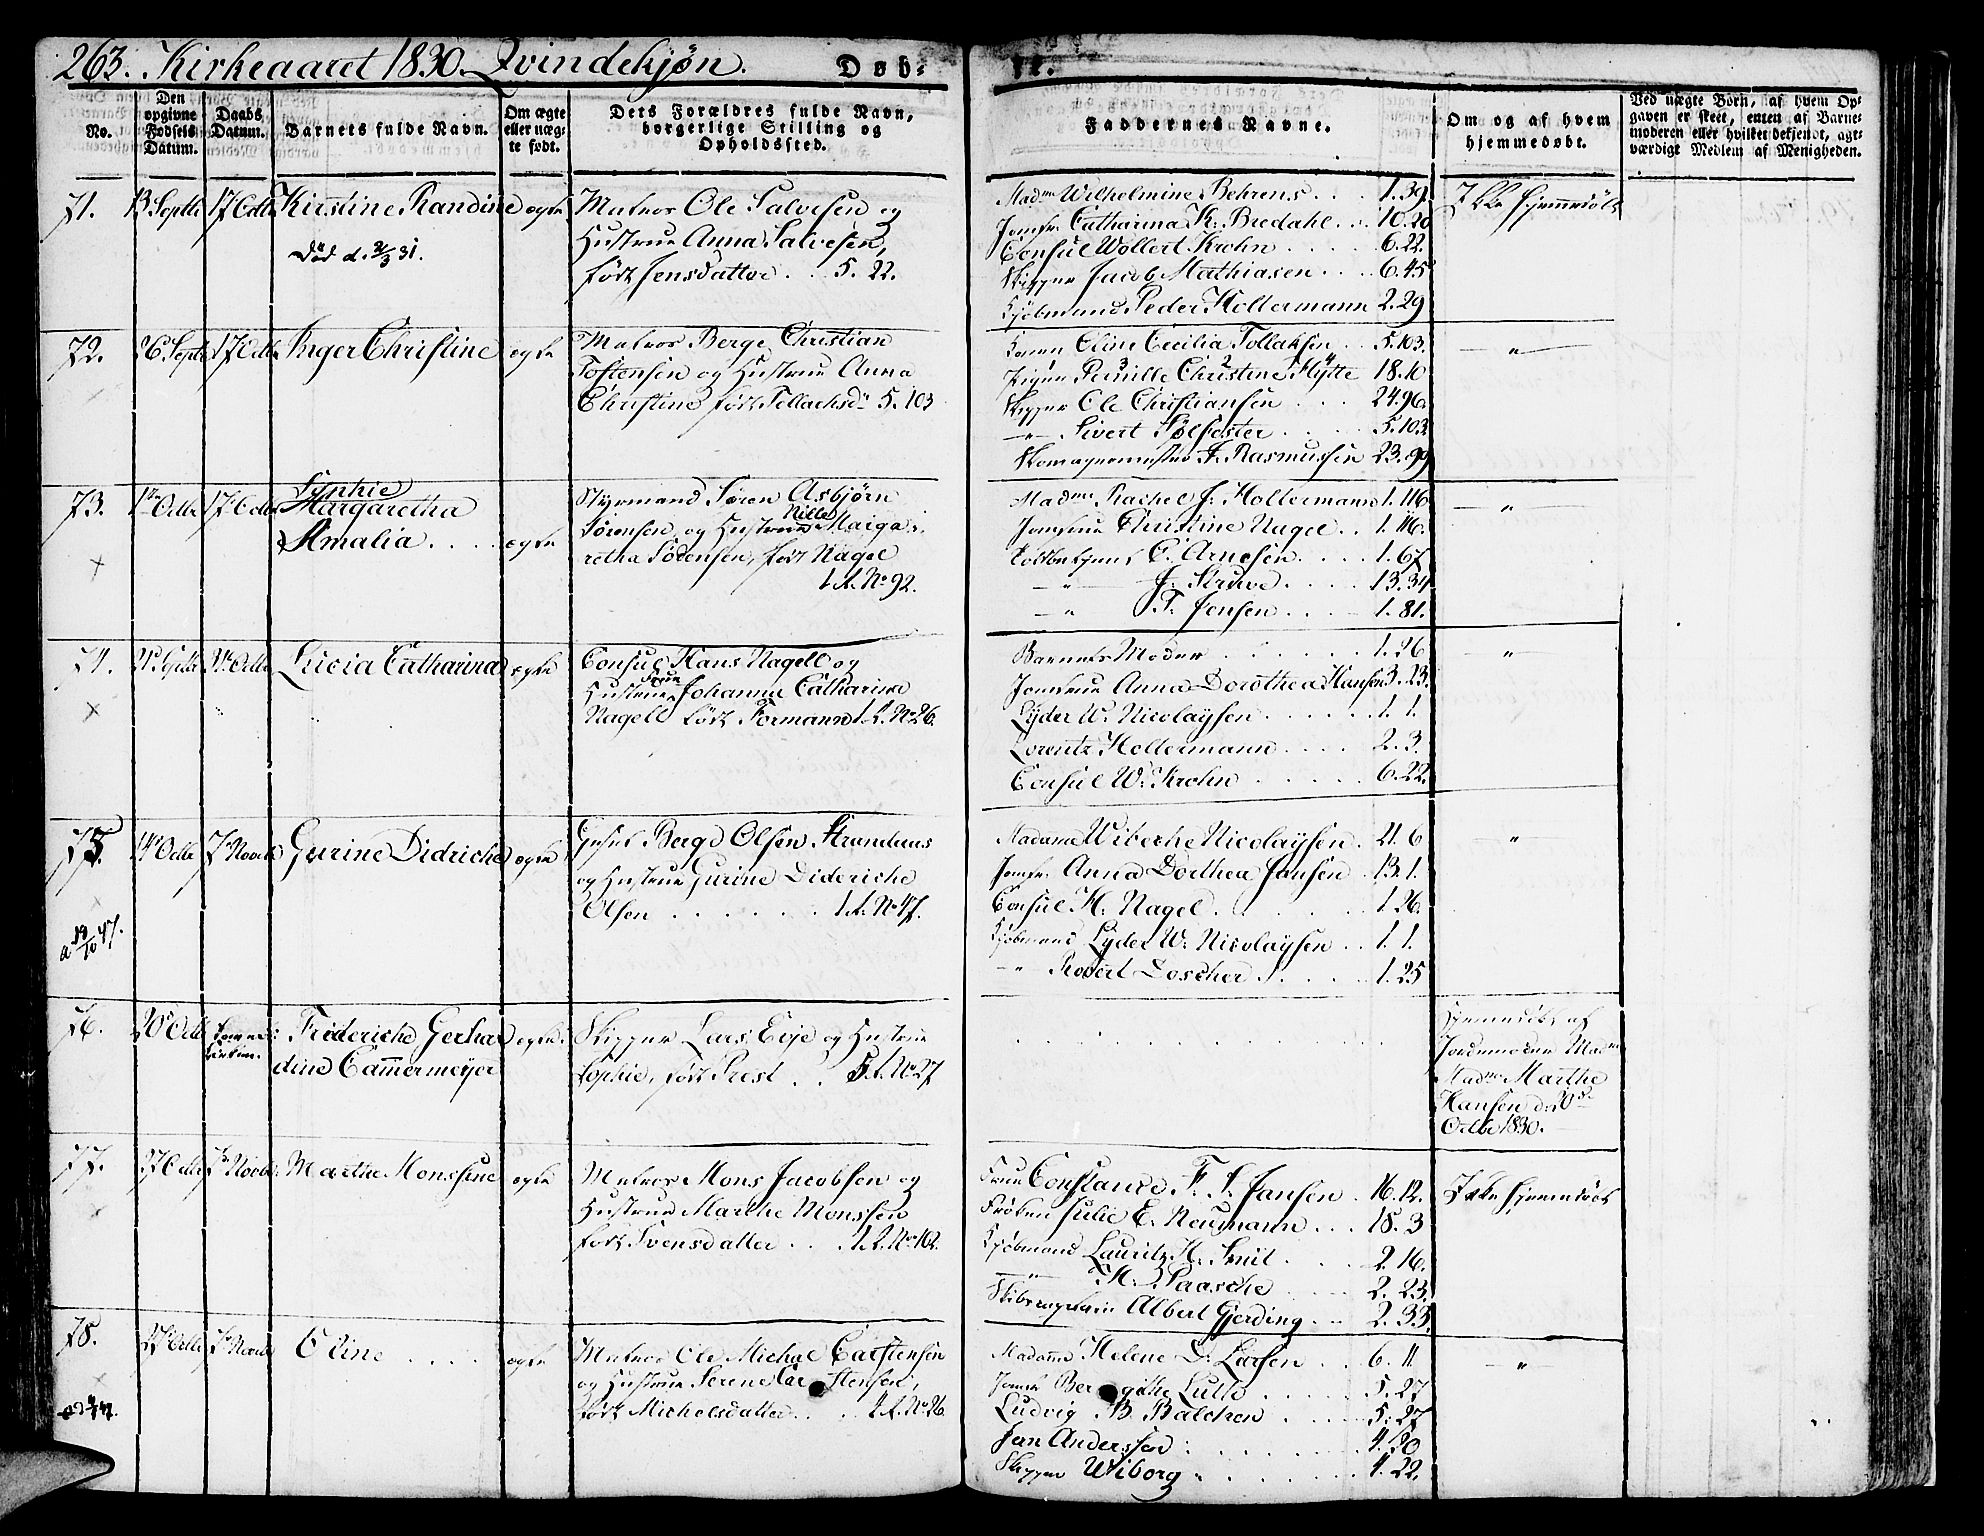 263. Kirkeaaret 1830. Qvindekjøn.
Døb-
te.
No.
Den opgivne Fødsels Datum.
Daabs Datum.
Barnets fulde Navn.
Om ægte eller uægte født.
Dets Forældres fulde Navn, borgerlige Stilling og Opholdssted.
Faddernes Navne.
Om og af hvem hjemmedøbt.
Ved uægte Børn, af hvem Opgaven er skeet, enten af Barnemoderen eller hvilket bekjendt, agtværdigt Medlem af Menigheden.
71. 13 Septbr 17 Octbr Kirstine Randine ægte
Død d. 2/3 31.
Matros Ole Salvesen og
Hustrue Anna Salvesen,
født Jensdatter . . 5. 22.
Madme Wilhelmine Behrens . . . 1. 39.
Jomfr. Catharina K: Bredahl . . 10. 20
Consul Wollert Krohn . . . 6. 22.
Skipper Jacob Mathiasen . . . 6. 45
Kjøbmand Peder Holtermann 2. 29
Ikke hjemmedøbt
72. 26 Septbr 17 Octbr Inger Christine ægte
Matros Berge Christian
Tostensen og Hustrue Anna
Christine født Tollachsdr 5. 103
Konen Eline Cecilia Tollaksen . . 5. 103.
Pigen Pernille Christine Hytte 18. 10
Skipper Ole Christiansen . . . 24. 96.
—"— Sivert Sølfester . . . 5. 103.
Skomagermester A. Rasmussen 23. 99
—"—
73. 1ste Octbr 17 Octbr
Sophie
Margaretha
Amalia . . . . ægte
Styrmand Søren Asbjørn
Sørensen, og Hustrue Nille Marga-
retha Sørensen, født Nagel
1 A. No 92.
Madme Rachel J. Holtermann 1. 116
Jomfrue Christine Nagel . . 1. 116.
Toldbetjent C. Arnesen . . . 1. 67
—"— J. Struve . . . . 13. 34
—"— T. Jensen . . . 1. 81.
—"—
74. Octbr Lucia Catharina ægte
Consul Hans Nagell og
Hustrue Johanna Catharina
Nagell født Formann 1 A. No 26.
Barnets Moder . . . . . . 1. 26
Jomfrue Anna Dorothea Hansen 3. 23.
Lyder W. Nicolaysen . . . . . 1. 1.
Lorentz Holtermann . . . . 2. 3.
Consul W: Krohn . . . . . 6. 22.
—"—
75. 14de Octbr 7 Novbr Gurine Didriche ægte
a 19/10 47.
Berge Olsen Strandnæs
og Hustrue Gurine Dideriche
Olsen . . . . . . . 1 A: No 47.
Madame Wibecke Nicolaysen . 21. 6
Jomfr. Anna Dorthea Jansen . 13. 1.
Consul H. Nagel . . . . . 1. 26.
Kjøbmand Lyder W. Nicolaysen . . 1. 1.
—"— Robert Loscher . . . . . 1. 25
"
76. 20de Octbr Frideriche Gerhar- ægte.
dine Cammermeyer
Skipper Lars Eeje og Hustrue
Sophie, født Prest . . 5 A. No 27
Hjemmedøbt af
Jordemoder Madme
Madme Marthe
Hansen d. 20de
Octbr 1830.
77. 27 Octbr 7de Novbr Marthe Monssine ægte
Matros Mons Jacobsen og
Hustrue Marthe Monssen
født Svensdatter . . . 1 A. No 102.
Frue Constance F. S. Jansen . 16. 12.
Frøken Julie E. Neumann . . . 18. 3
Kjøbmand Lauritz H. Smit . . . . 2. 16.
—"— H. Paasche . . . . 2. 23.
Skibscaptein Albert Gjerding . . . 2. 33.
Ikke hjemmedøbt
78. 27 Octbr 7de Novbr Eline . . . . ægte
Matros Ole Michal Carstensen
og Hustrue Serene Carstensen,
født Michelsdatter . . . . 4 A. No 26.
Madame Helene D. Larsen . . 6. 11
Jomfr Beregithe Lutte . . . . . 5. 27
Ludvig B. Balchen . . . . . 5. 27
Jan Anderssen . . . . . 4. 20
Skipper Wiborg . . . . . . 4. 22.
—"—